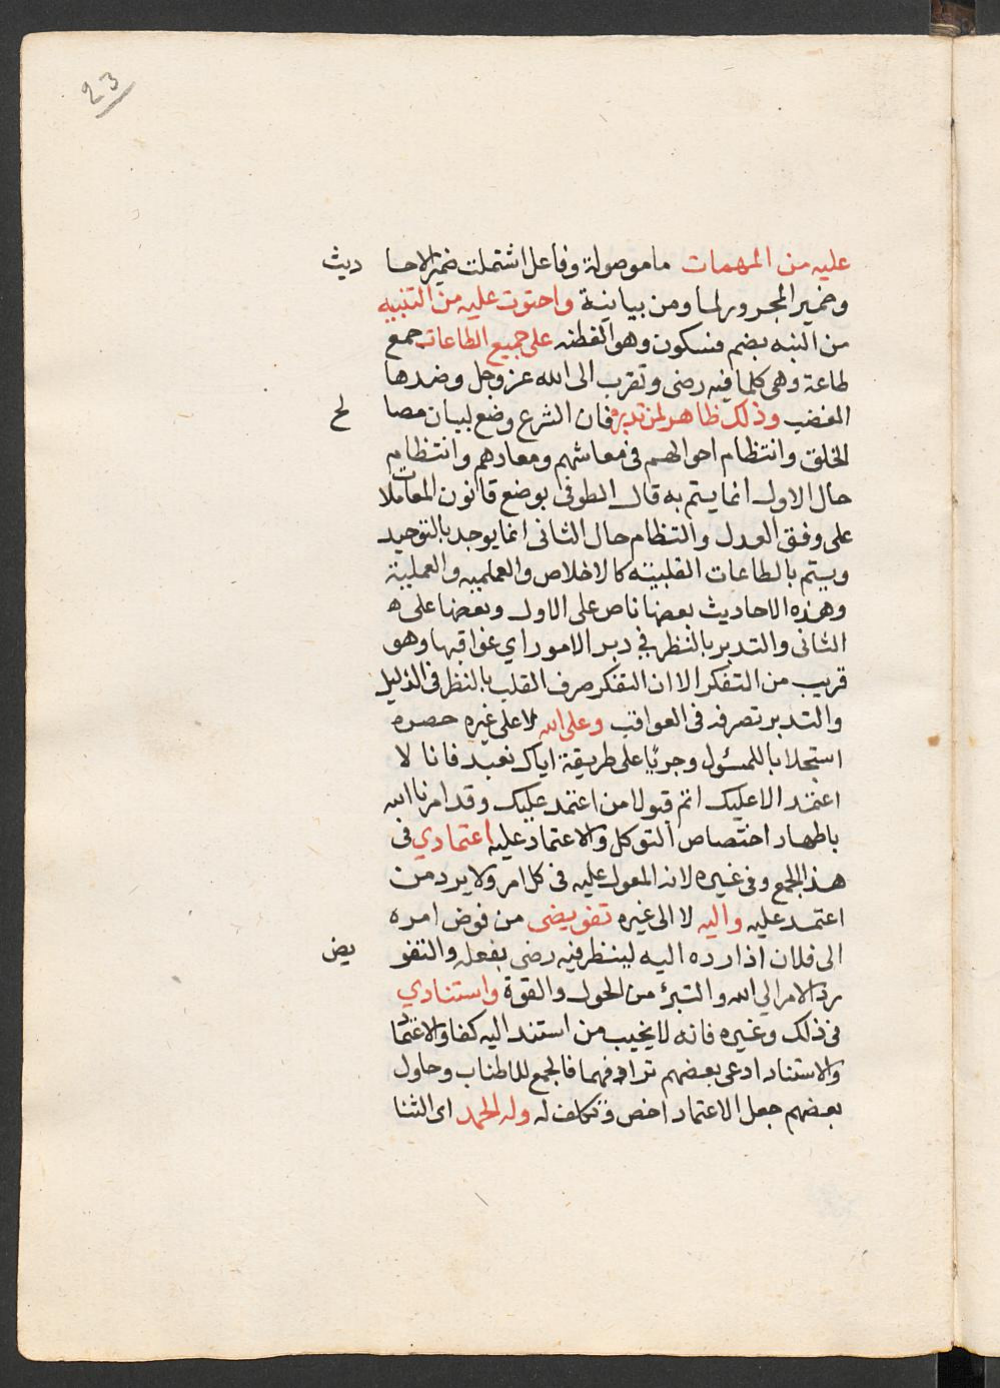 23
عليه من المهمات ما موصولة وفاعل اشتملت ضمير الاحاديث
وضمير المجرور لما ومن بيانية واحتوت عليه من التنبيه
من النبه بضم فسكون وهو الفطنه على جميع الطاعات جمع
طاعة وهى كلما فيه رضى وتقرب الى الله عز وجل وضدها
الغضب وذلك ظاهر لمن تدبره فان الشرع وضع لبيان مصالح
الخلق وانتظام احوالهم فى معاشهم ومعادهم وانتظام
حال الاول انما يتم به قال الطوفى بوضع قانون المعاملات
على وفق العدل والتظام حال الثانى انما يوجد بالتوحيد
ويتم بالطاعات القلبيته كالاخلاص والعلميه والعملية
وهذه الاحاديث بعضها ناص على الاول وبعضها على ه
الثانى والتدبر بالنظر في دبر الامور اي عواقبها وهو
قريب من التفكر الا ان التفكر صرف القلب بالنظر فى الدليل
والتدبر تصرفه فى العواقب وعلى الله لا على غيره حصره
استجلابا للمسئول وجريًا على طريقة اياك نعبد فانا لا
اعتمد الا عليك اتم قبولا من اعتمد عليك وقد امرنا الله
باظهار اختصاص التوكل والاعتماد عليه اعتمادي فى
هذا الجمع وفى غيره لانه المعول عليه فى كل امر ولا يرد من
اعتمد عليه واليه لا الى غيره تفويضى من فوض امره
الى فلان اذا رده اليه لينظر فيه رضى بفعله والتفويض
رد الامر الي الله والتبرئ من الحول والقوة واستنادي
فى ذلك وغيره فانه لا يخيب من استند اليه كفا والاعتماد
والاستناد ادعى بعضهم ترادفهما فالجمع للاطناب وحاول
بعضهم جعل الاعتماد اخص وتكلف له وله الحمد اى الثنا